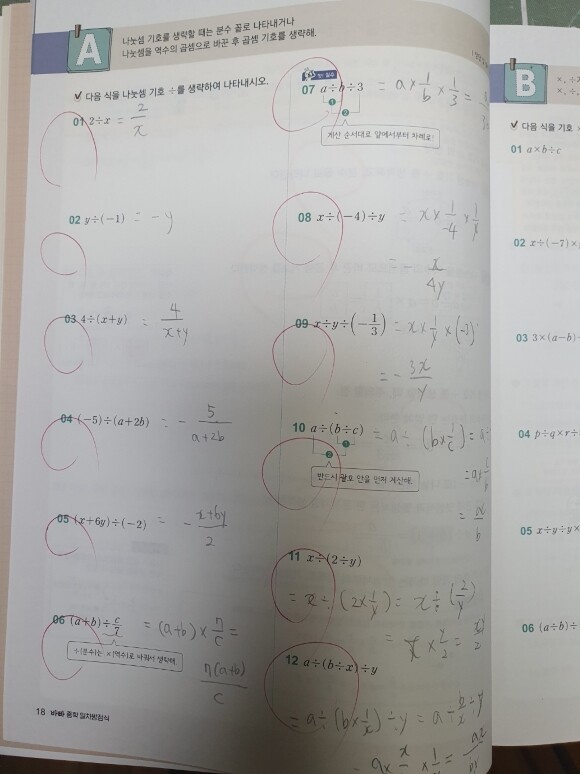 A
나눗셈 기호를 생략할 때는 분수 꼴로 나타내거나
나눗셈을 역수의 곱셈으로 바꾼 후 곱셈 기호를 생략해.
✔ 다음 식을 나눗셈 기호 ÷를 생략하여 나타내시오.
01 2÷x = 2/x
02 y÷(-1) = -y
03 4÷(x+y) = 4/(x+y)
04 (-5)÷(a+2b) = - 5/(a+2b)
05 (x+6y)÷(-2) = - (x+6y)/2
06 (a+b)÷c/7 = (a+b)×7/c =
÷(분수)는 ×(역수)로 바꿔서 생략해.
7(a+b)/c
18 바빠 중학 일차방정식
07 a÷b÷3 = a×1/b×1/3 =
❶
❷
계산 순서대로 앞에서부터 차례로!
08 x÷(-4)÷y = x×1/-4×1/y
= - x/4y
09 x÷y÷(-1/3) = x×1/y×(-3)
= - 3x/y
10 a÷(b÷c) = a÷(b×1/c) =
❶
❷
반드시 괄호 안을 먼저 계산해.
11 x÷(2÷y)
= x÷(2×1/y) = x÷(2/y)
= x×y/2 = xy/2
12 a÷(b÷x)÷y
= a÷(b×1/x)÷y = a÷b/x÷y
B
✔ 다음 식을 기호 ×
01 a×b÷c
02 x÷(-7)×
03 3×(a-b)
04 p÷q×r÷
05 x÷y÷y×
06 (a÷b)÷